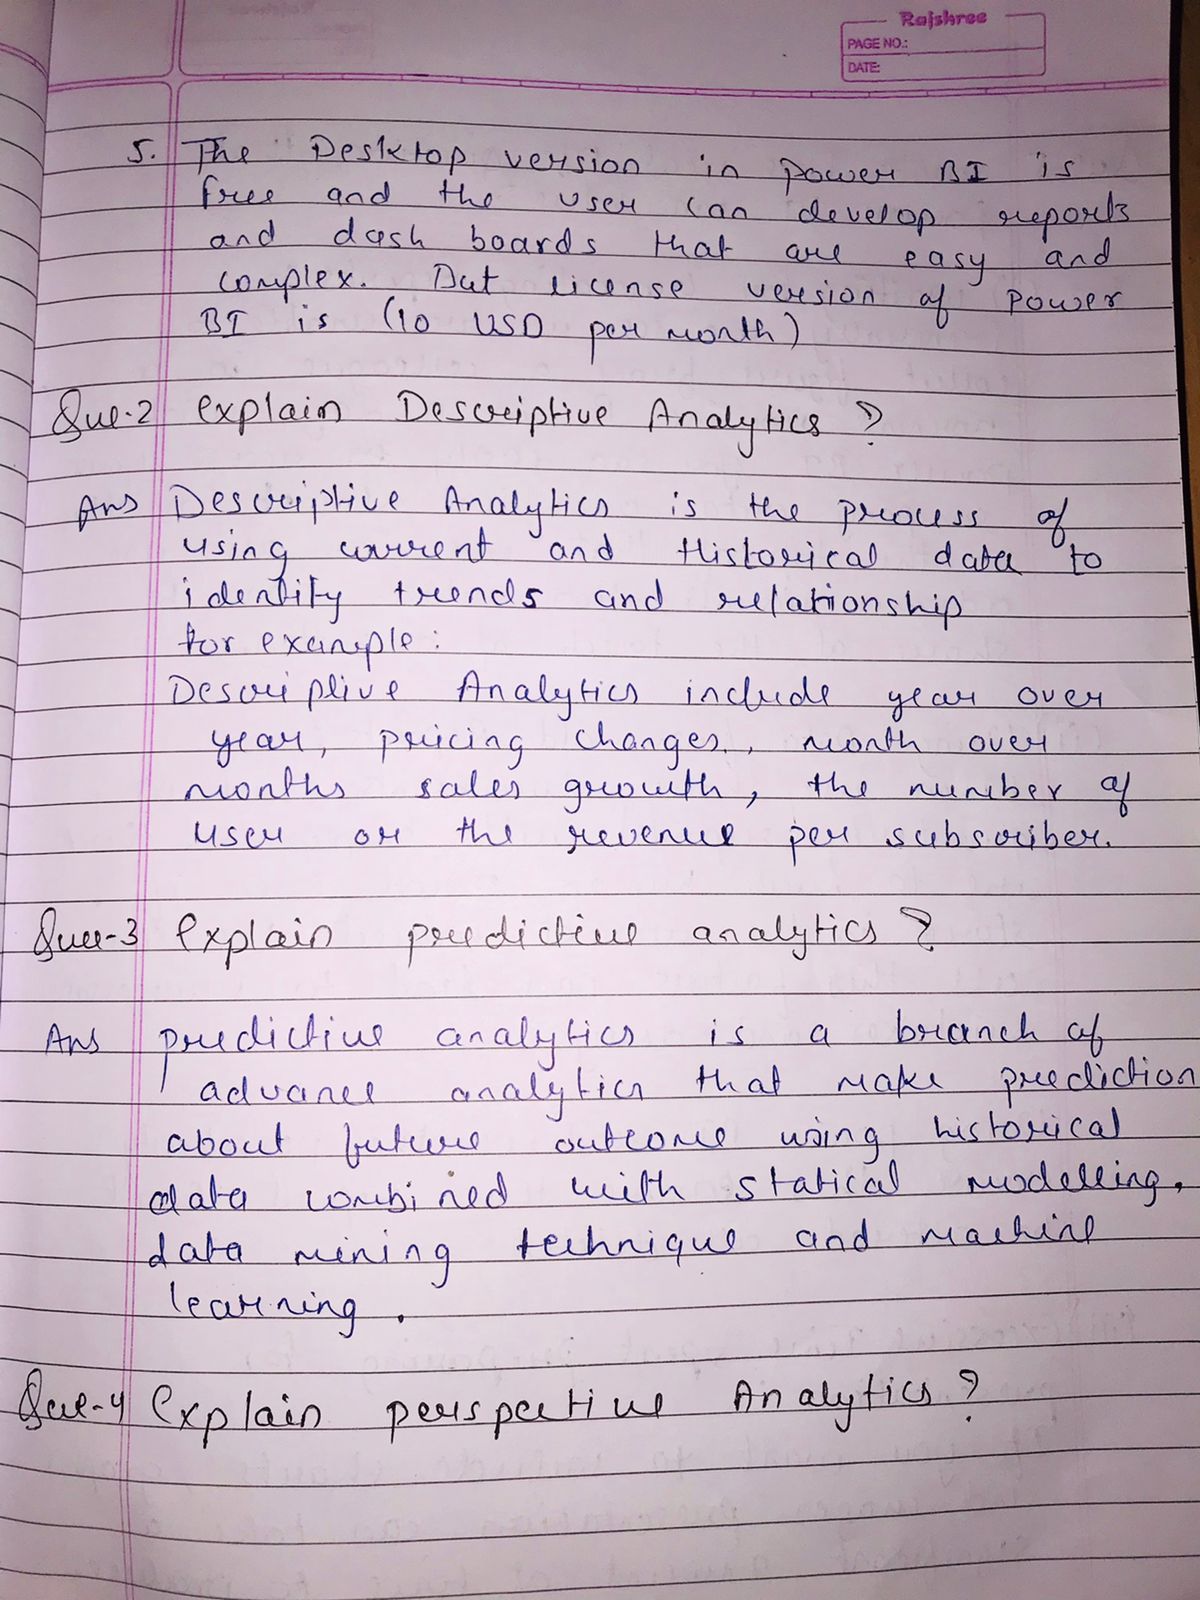 Rajshree
PAGE NO.:
DATE:
5. The Desktop version in power BI is
free and the user can develop reports
and dash boards that are easy and
complex. But license version of Power
BI is (10 USD per month)
Que-2 explain Descriptive Analytics ?
Ans Descriptive Analytics is the process of
using current and Historical data to
identify trends and relationship
for example:
Descriptive Analytics include year over
year, pricing changes, month over
months sales growth, the number of
user or the revenue per subscriber.
Que-3 Explain predictive analytics ?
Ans predictive analytics is a branch of
advance analytics that make prediction
about future outcome using historical
data combined with statical modelling,
data mining technique and machine
learning.
Que-4 Explain perspective Analytics ?